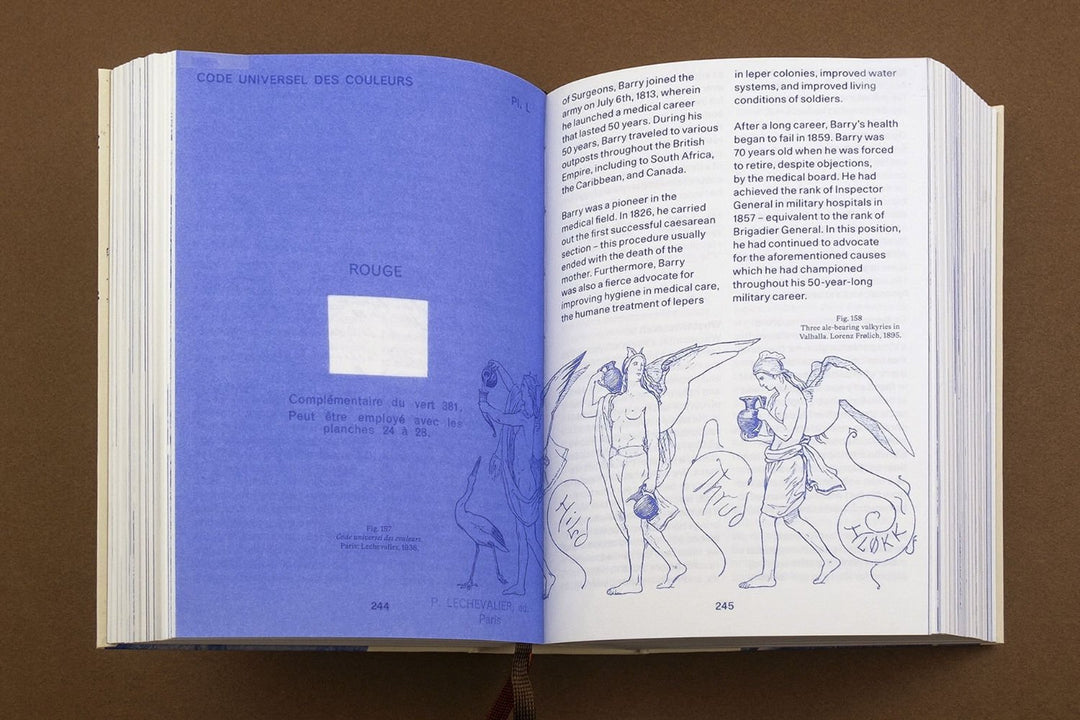 CODE UNIVERSEL DES COULEURS
Pl. L
ROUGE
Complémentaire du vert 381.
Peut être employé avec les
planches 24 à 28.
Fig. 157
Code universel des couleurs.
Paris: Lechevalier, 1936.
244
P. LECHEVALIER, éd.
Paris
of Surgeons, Barry joined the
army on July 6th, 1813, wherein
he launched a medical career
that lasted 50 years. During his
50 years, Barry traveled to various
outposts throughout the British
Empire, including to South Africa,
the Caribbean, and Canada.
Barry was a pioneer in the
medical field. In 1826, he carried
out the first successful caesarean
section – this procedure usually
ended with the death of the
mother. Furthermore, Barry
was also a fierce advocate for
improving hygiene in medical care,
the humane treatment of lepers
in leper colonies, improved water
systems, and improved living
conditions of soldiers.
After a long career, Barry's health
began to fail in 1859. Barry was
70 years old when he was forced
to retire, despite objections,
by the medical board. He had
achieved the rank of Inspector
General in military hospitals in
1857 – equivalent to the rank of
Brigadier General. In this position,
he had continued to advocate
for the aforementioned causes
which he had championed
throughout his 50-year-long
military career.
Fig. 158
Three ale-bearing valkyries in
Valhalla. Lorenz Frølich, 1895.
Hild
Thrud
HLØKK
245